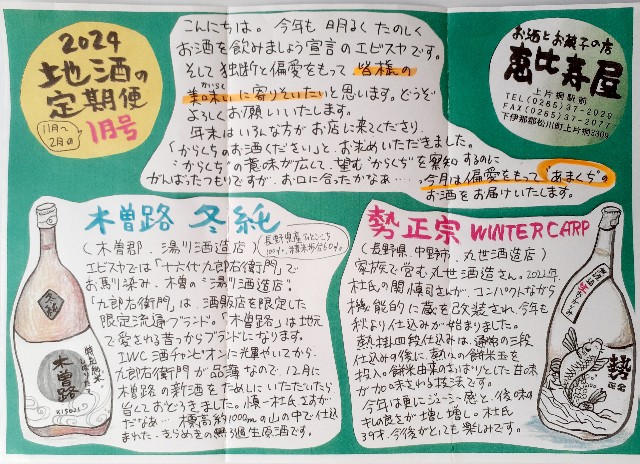 2024
地酒の
定期便
11月〜
2月の
1月号
こんにちは。今年も明るくたのしく
お酒を飲みましょう宣言のエビスヤです。
そして独断と偏愛をもって皆様の
美味しいに寄りそいたいと思います。どうぞ
よろしくお願いいたします。
年末はいろんな方がお店に来てくださり、
「からくちのお酒ください」と、お求めいただきました。
"からくち"の意味が広くて、望む"からくち"を察知するのに
がんばったつもりですが、お口に合ったかなぁ…。
今月は偏愛をもって"あまくち"の
お酒をお届けいたします。
お酒とお菓子の店
恵比寿屋
上片桐駅前
TEL(0265)37-2029
FAX(0265)37-2077
下伊那郡松川町上片桐3309
木曽路 冬純
長野県産ひとごこち
100%、精米歩合60%。
(木曽郡. 湯川酒造店)
エビスヤでは「十六代九郎右衛門」で
お馴染み、木曽の"湯川酒造店"。
「九郎右衛門」は、酒販店を限定した
限定流通ブランド。「木曽路」は地元
で愛される昔っからブランドになります。
IWC酒チャンピオンに光輝やいてから、
九郎右衛門が品薄なので、12月に
木曽路の新酒をためしにいただいたら
旨くておどろきました。慎一杜氏さすが
だなぁ…標高約1000mの山の中で仕込
まれた、きらめきの無ろ過生原酒です。
冬純
特別純米
しぼりたて
木曽路
KISOJI
勢正宗 WINTER CARP
(長野県、中野市. 丸世酒造店)
家族で営む丸世酒造さん。2022年、
杜氏の関慎司さんが、コンパクトながら
機能的に蔵を改装され、今年も
秋より仕込みが始まりました。
熱掛四段仕込みは、通常の三段
仕込みの後に、熱々の餅米を
投入。餅米由来のさっぱりとした甘味
が加味される技法です。
今年は更にジューシー感と、後味の
キレの良さが増し増し。杜氏
39才、今後がとても楽しみです。
勢
正宗